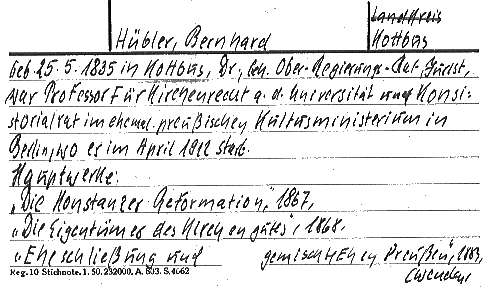 Landkreis
Hübler, Bernhard Kottbus
geb 25.5.1835 in Kottbus, Dr., Geh. Ober-Regierungs-Rat, Jurist,
war Professor für Kirchenrecht a. d. Universität und Konsi-
storialrat im ehemal. preußischen Kultusministerium in
Berlin, wo er im April 1912 starb.
Hauptwerke:
„Die Konstanzer Reformation," 1867,
„Die Eigentümer des Kirchengutes", 1868.
„Eheschließung und gemischte Ehen Preußen", 1883,
Reg. 10 Stichnote. 1. 50. 232000. A. 803. S. 4662